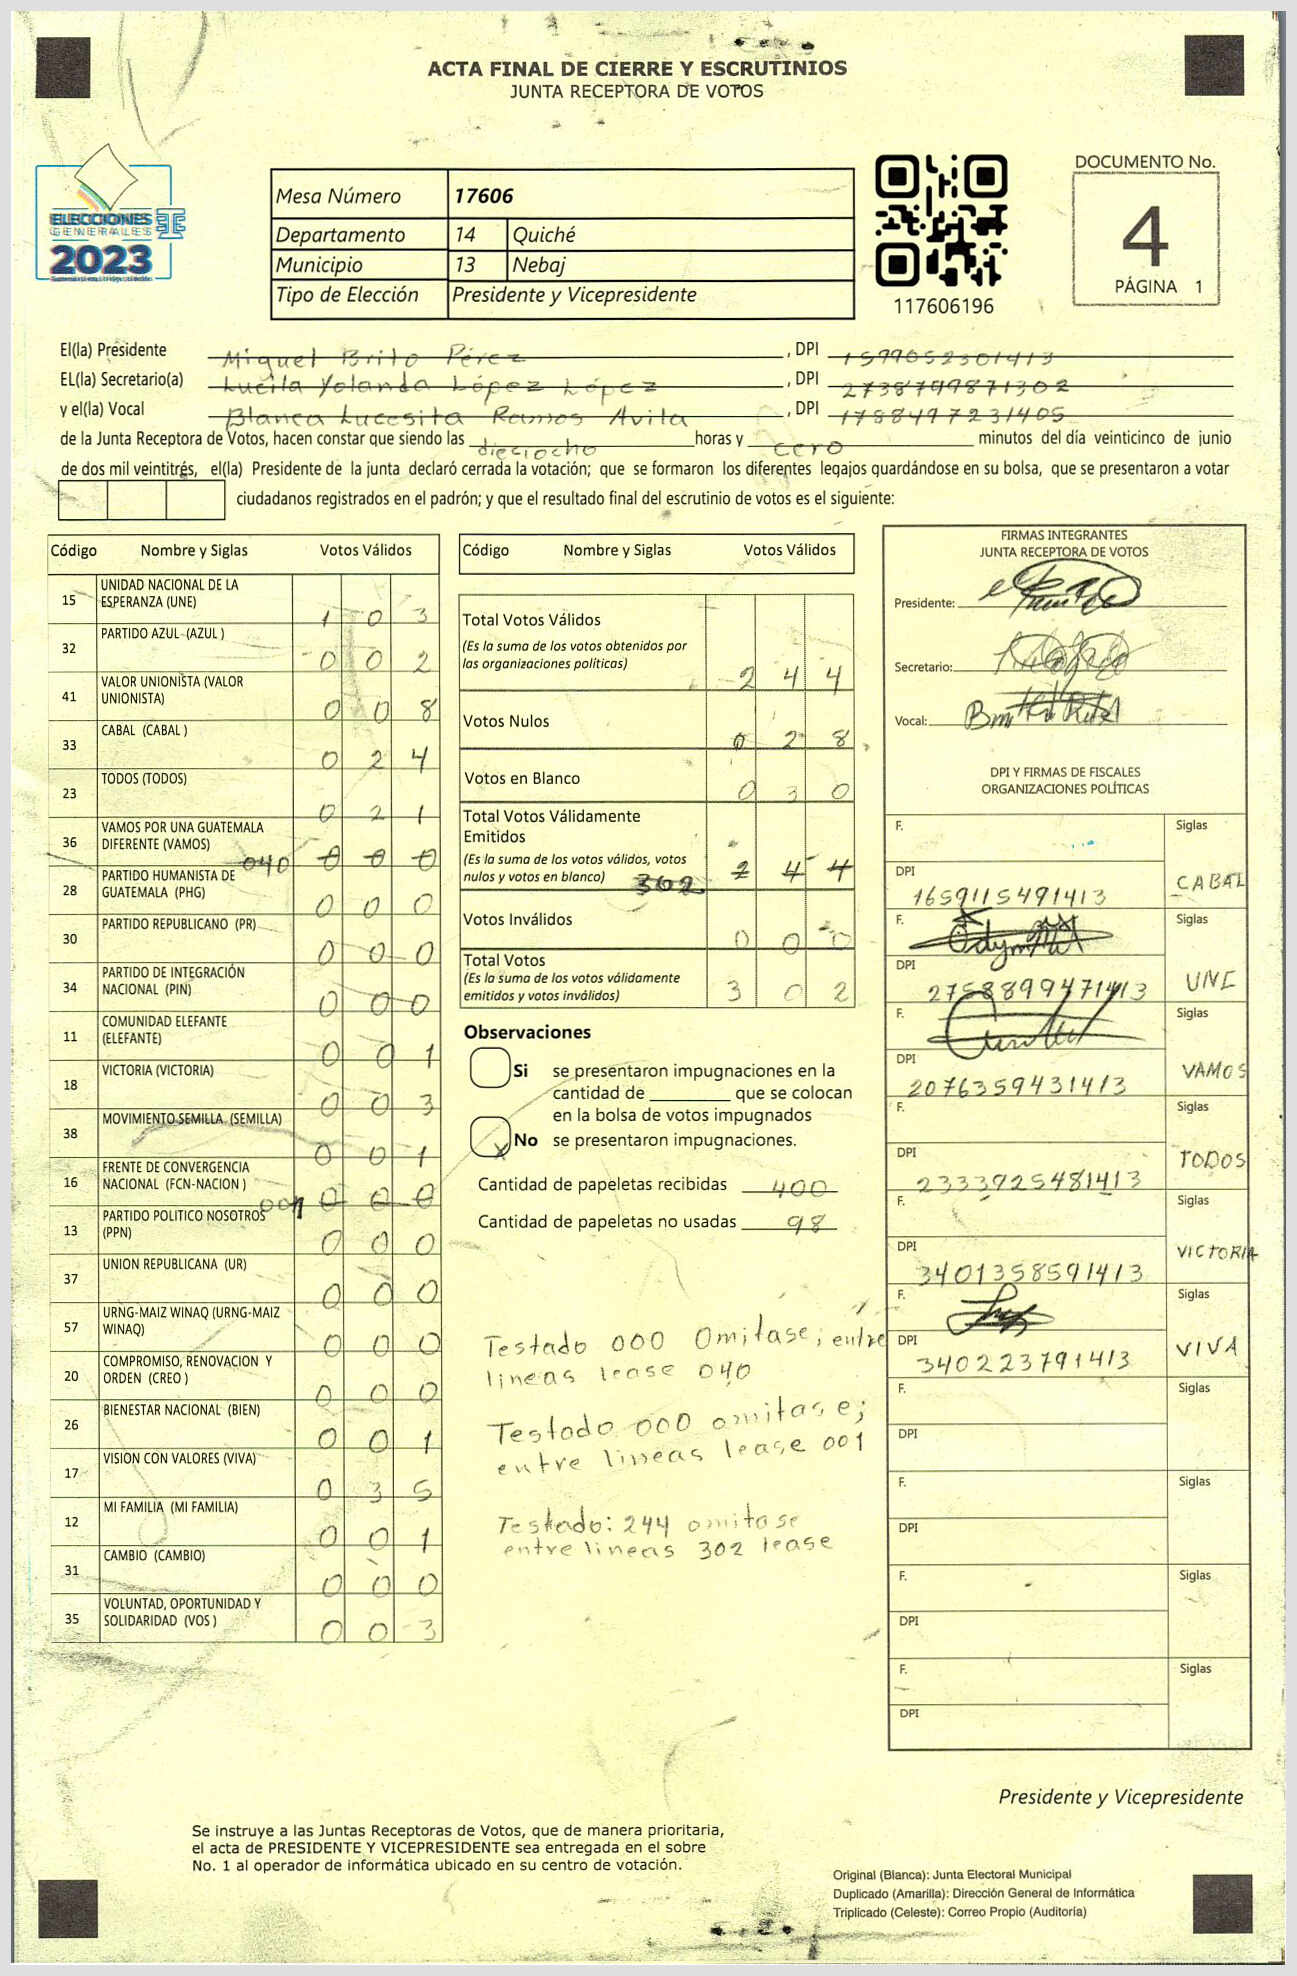 ACTA FINAL DE CIERRE Y ESCRUTINIOS
JUNTA RECEPTORA DE VOTOS
ELECCIONES
GENERALES
2023
Mesa Número 17606
Departamento 14 Quiché
Municipio 13 Nebaj
Tipo de Elección Presidente y Vicepresidente
117606196
DOCUMENTO No.
4
PÁGINA 1
El(la) Presidente Miguel Brito Pérez , DPI 1599052301413
EL(la) Secretario(a) Lucila Yolanda López López , DPI 2738799871302
y el(la) Vocal Blanca Lucesita Ramos Avila , DPI 1788497231405
de la Junta Receptora de Votos, hacen constar que siendo las dieciocho horas y cero minutos del día veinticinco de junio
de dos mil veintitrés, el(la) Presidente de la junta declaró cerrada la votación; que se formaron los diferentes legajos guardándose en su bolsa, que se presentaron a votar
ciudadanos registrados en el padrón; y que el resultado final del escrutinio de votos es el siguiente:
Código Nombre y Siglas Votos Válidos
15 UNIDAD NACIONAL DE LA ESPERANZA (UNE) 1 0 3
32 PARTIDO AZUL (AZUL ) 0 0 2
41 VALOR UNIONISTA (VALOR UNIONISTA) 0 0 8
33 CABAL (CABAL ) 0 2 4
23 TODOS (TODOS) 0 2 1
36 VAMOS POR UNA GUATEMALA DIFERENTE (VAMOS) 040 0 0 0
28 PARTIDO HUMANISTA DE GUATEMALA (PHG) 0 0 0
30 PARTIDO REPUBLICANO (PR) 0 0 0
34 PARTIDO DE INTEGRACIÓN NACIONAL (PIN) 0 0 0
11 COMUNIDAD ELEFANTE (ELEFANTE) 0 0 1
18 VICTORIA (VICTORIA) 0 0 3
38 MOVIMIENTO SEMILLA (SEMILLA) 0 0 1
16 FRENTE DE CONVERGENCIA NACIONAL (FCN-NACION ) 001 0 0 0
13 PARTIDO POLITICO NOSOTROS (PPN) 0 0 0
37 UNION REPUBLICANA (UR) 0 0 0
57 URNG-MAIZ WINAQ (URNG-MAIZ WINAQ) 0 0 0
20 COMPROMISO, RENOVACION Y ORDEN (CREO ) 0 0 0
26 BIENESTAR NACIONAL (BIEN) 0 0 1
17 VISION CON VALORES (VIVA) 0 3 5
12 MI FAMILIA (MI FAMILIA) 0 0 1
31 CAMBIO (CAMBIO) 0 0 0
35 VOLUNTAD, OPORTUNIDAD Y SOLIDARIDAD (VOS ) 0 0 3
Código Nombre y Siglas Votos Válidos
Total Votos Válidos
(Es la suma de los votos obtenidos por
las organizaciones políticas) 2 4 4
Votos Nulos 0 2 8
Votos en Blanco 0 3 0
Total Votos Válidamente
Emitidos
(Es la suma de los votos válidos, votos
nulos y votos en blanco) 302 2 4 4
Votos Inválidos 0 0 0
Total Votos
(Es la suma de los votos válidamente
emitidos y votos inválidos) 3 0 2
Observaciones
Si se presentaron impugnaciones en la
cantidad de que se colocan
en la bolsa de votos impugnados
x No se presentaron impugnaciones.
Cantidad de papeletas recibidas 400
Cantidad de papeletas no usadas 98
Testado 000 Omitase; entre
lineas lease 040
Testado 000 omitase;
entre lineas lease 001
Testado: 244 omitase
entre lineas 302 lease
FIRMAS INTEGRANTES
JUNTA RECEPTORA DE VOTOS
Presidente:
Secretario:
Vocal:
DPI Y FIRMAS DE FISCALES
ORGANIZACIONES POLÍTICAS
F. Siglas
DPI 1659115491413 CABAL
F. Siglas
DPI 2758899471413 UNE
F. Siglas
DPI 2076359431413 VAMOS
F. Siglas
DPI 2333925481413 TODOS
F. Siglas
DPI 3401358591413 VICTORIA
F. Siglas
DPI 340223791413 VIVA
F. Siglas
DPI
F. Siglas
DPI
F. Siglas
DPI
F. Siglas
DPI
Presidente y Vicepresidente
Se instruye a las Juntas Receptoras de Votos, que de manera prioritaria,
el acta de PRESIDENTE Y VICEPRESIDENTE sea entregada en el sobre
No. 1 al operador de informática ubicado en su centro de votación.
Original (Blanca): Junta Electoral Municipal
Duplicado (Amarilla): Dirección General de Informática
Triplicado (Celeste): Correo Propio (Auditoría)